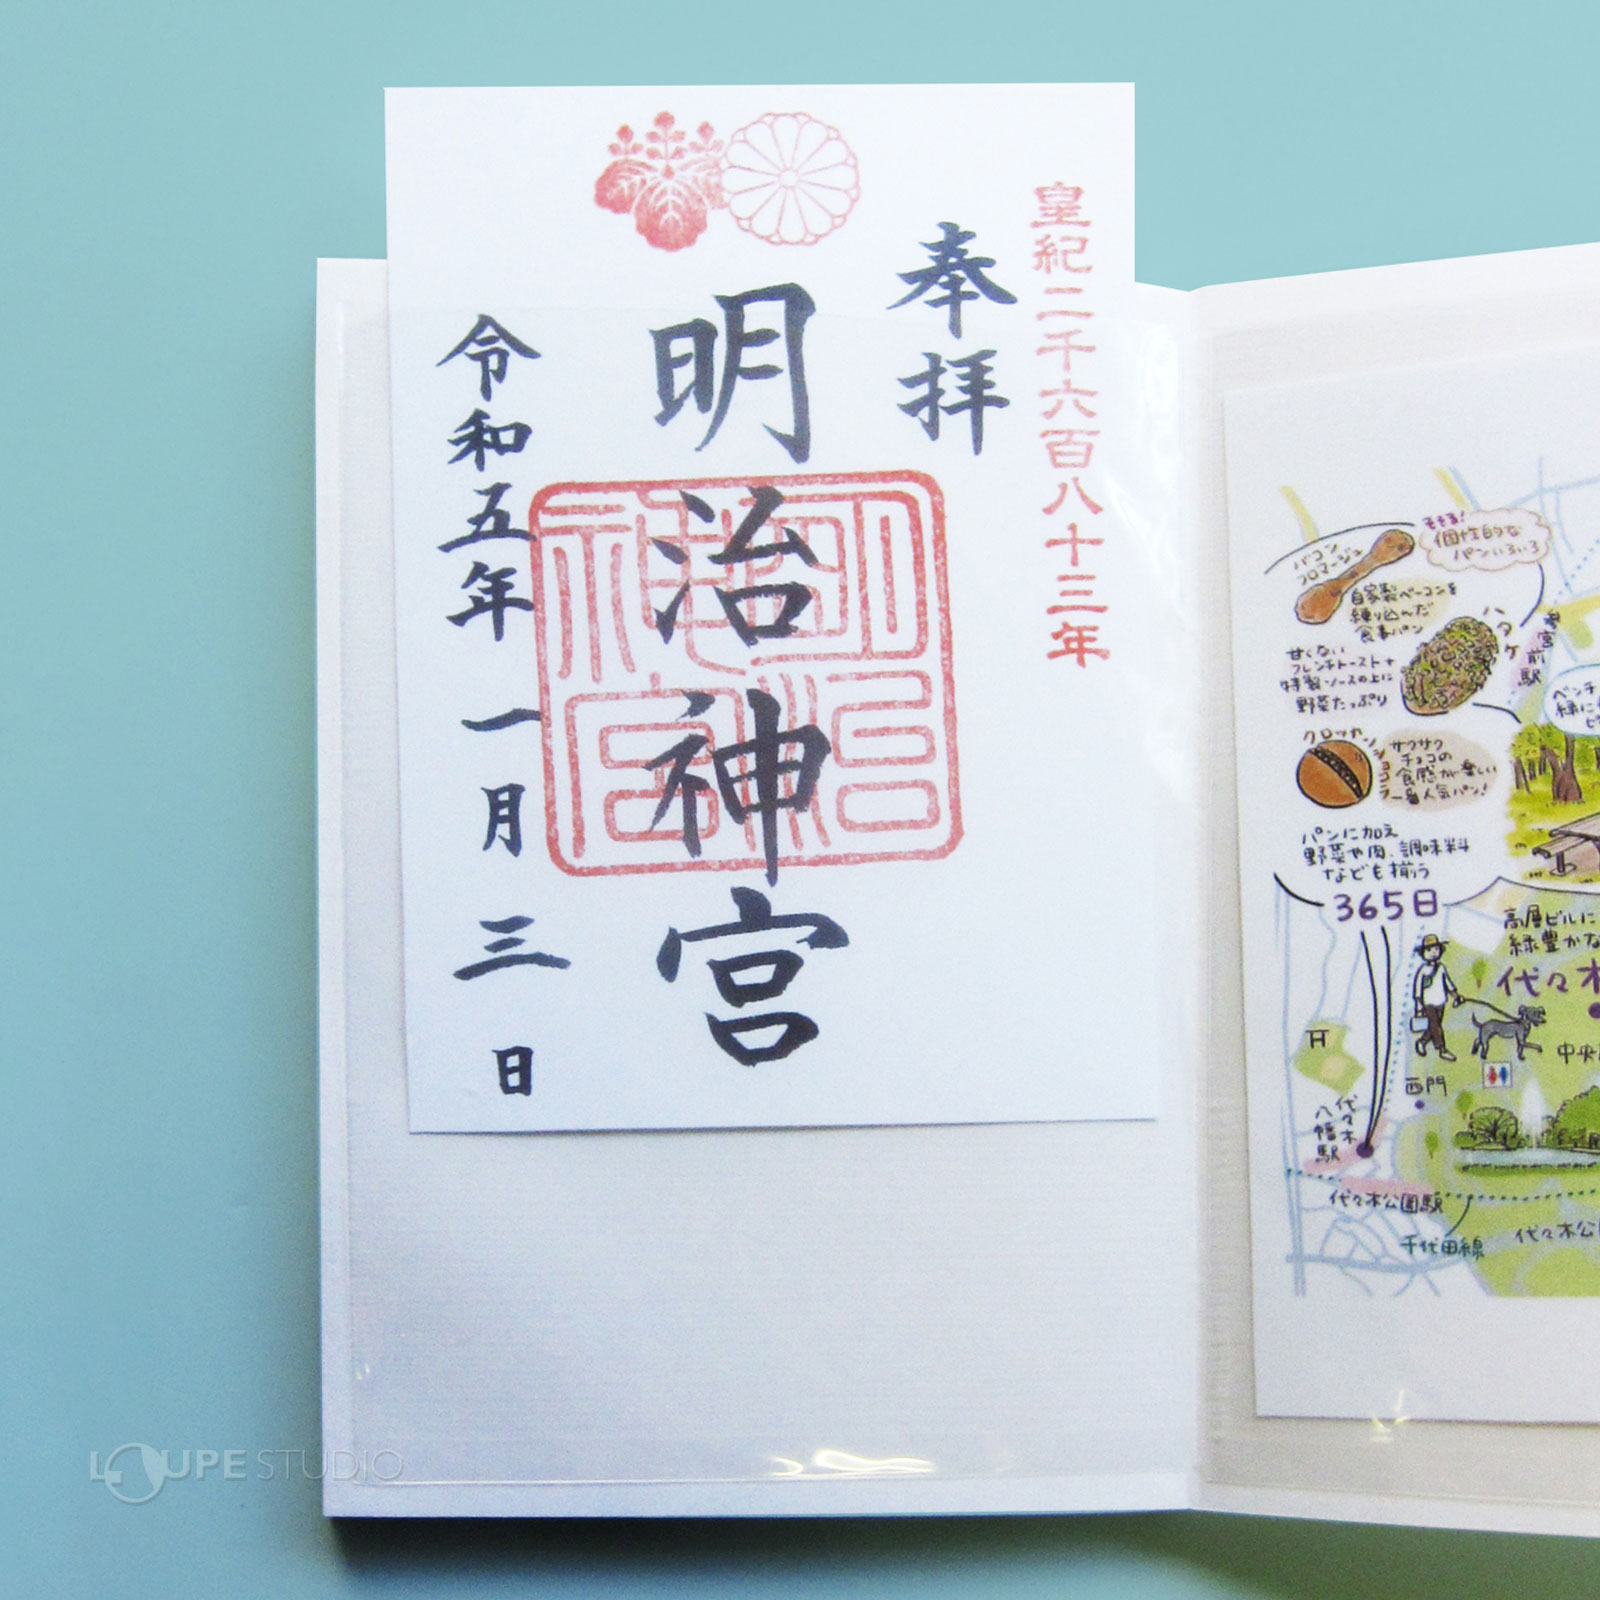 皇紀二千六百八十三年
奉拝
明治神宮
令和五年一月三日
明治神宮
そそる!
個性的な
パンいろいろ
ベーコン
フロマージュ
自家製ベーコンを
練り込んだ
食事パン
甘くない
フレンチトースト+
特製ソースの上に
野菜たっぷり
神宮前駅
ベンチ
クロッカンショコラ
サクサク
チョコの
食感が楽しい
一番人気パン!
パンに加え
野菜や肉、調味料
なども揃う
365日
高層ビルに
緑豊かな
代々木
中央
西門
代々木
八幡駅
代々木公園駅
千代田線
代々木公
LOUPE STUDIO